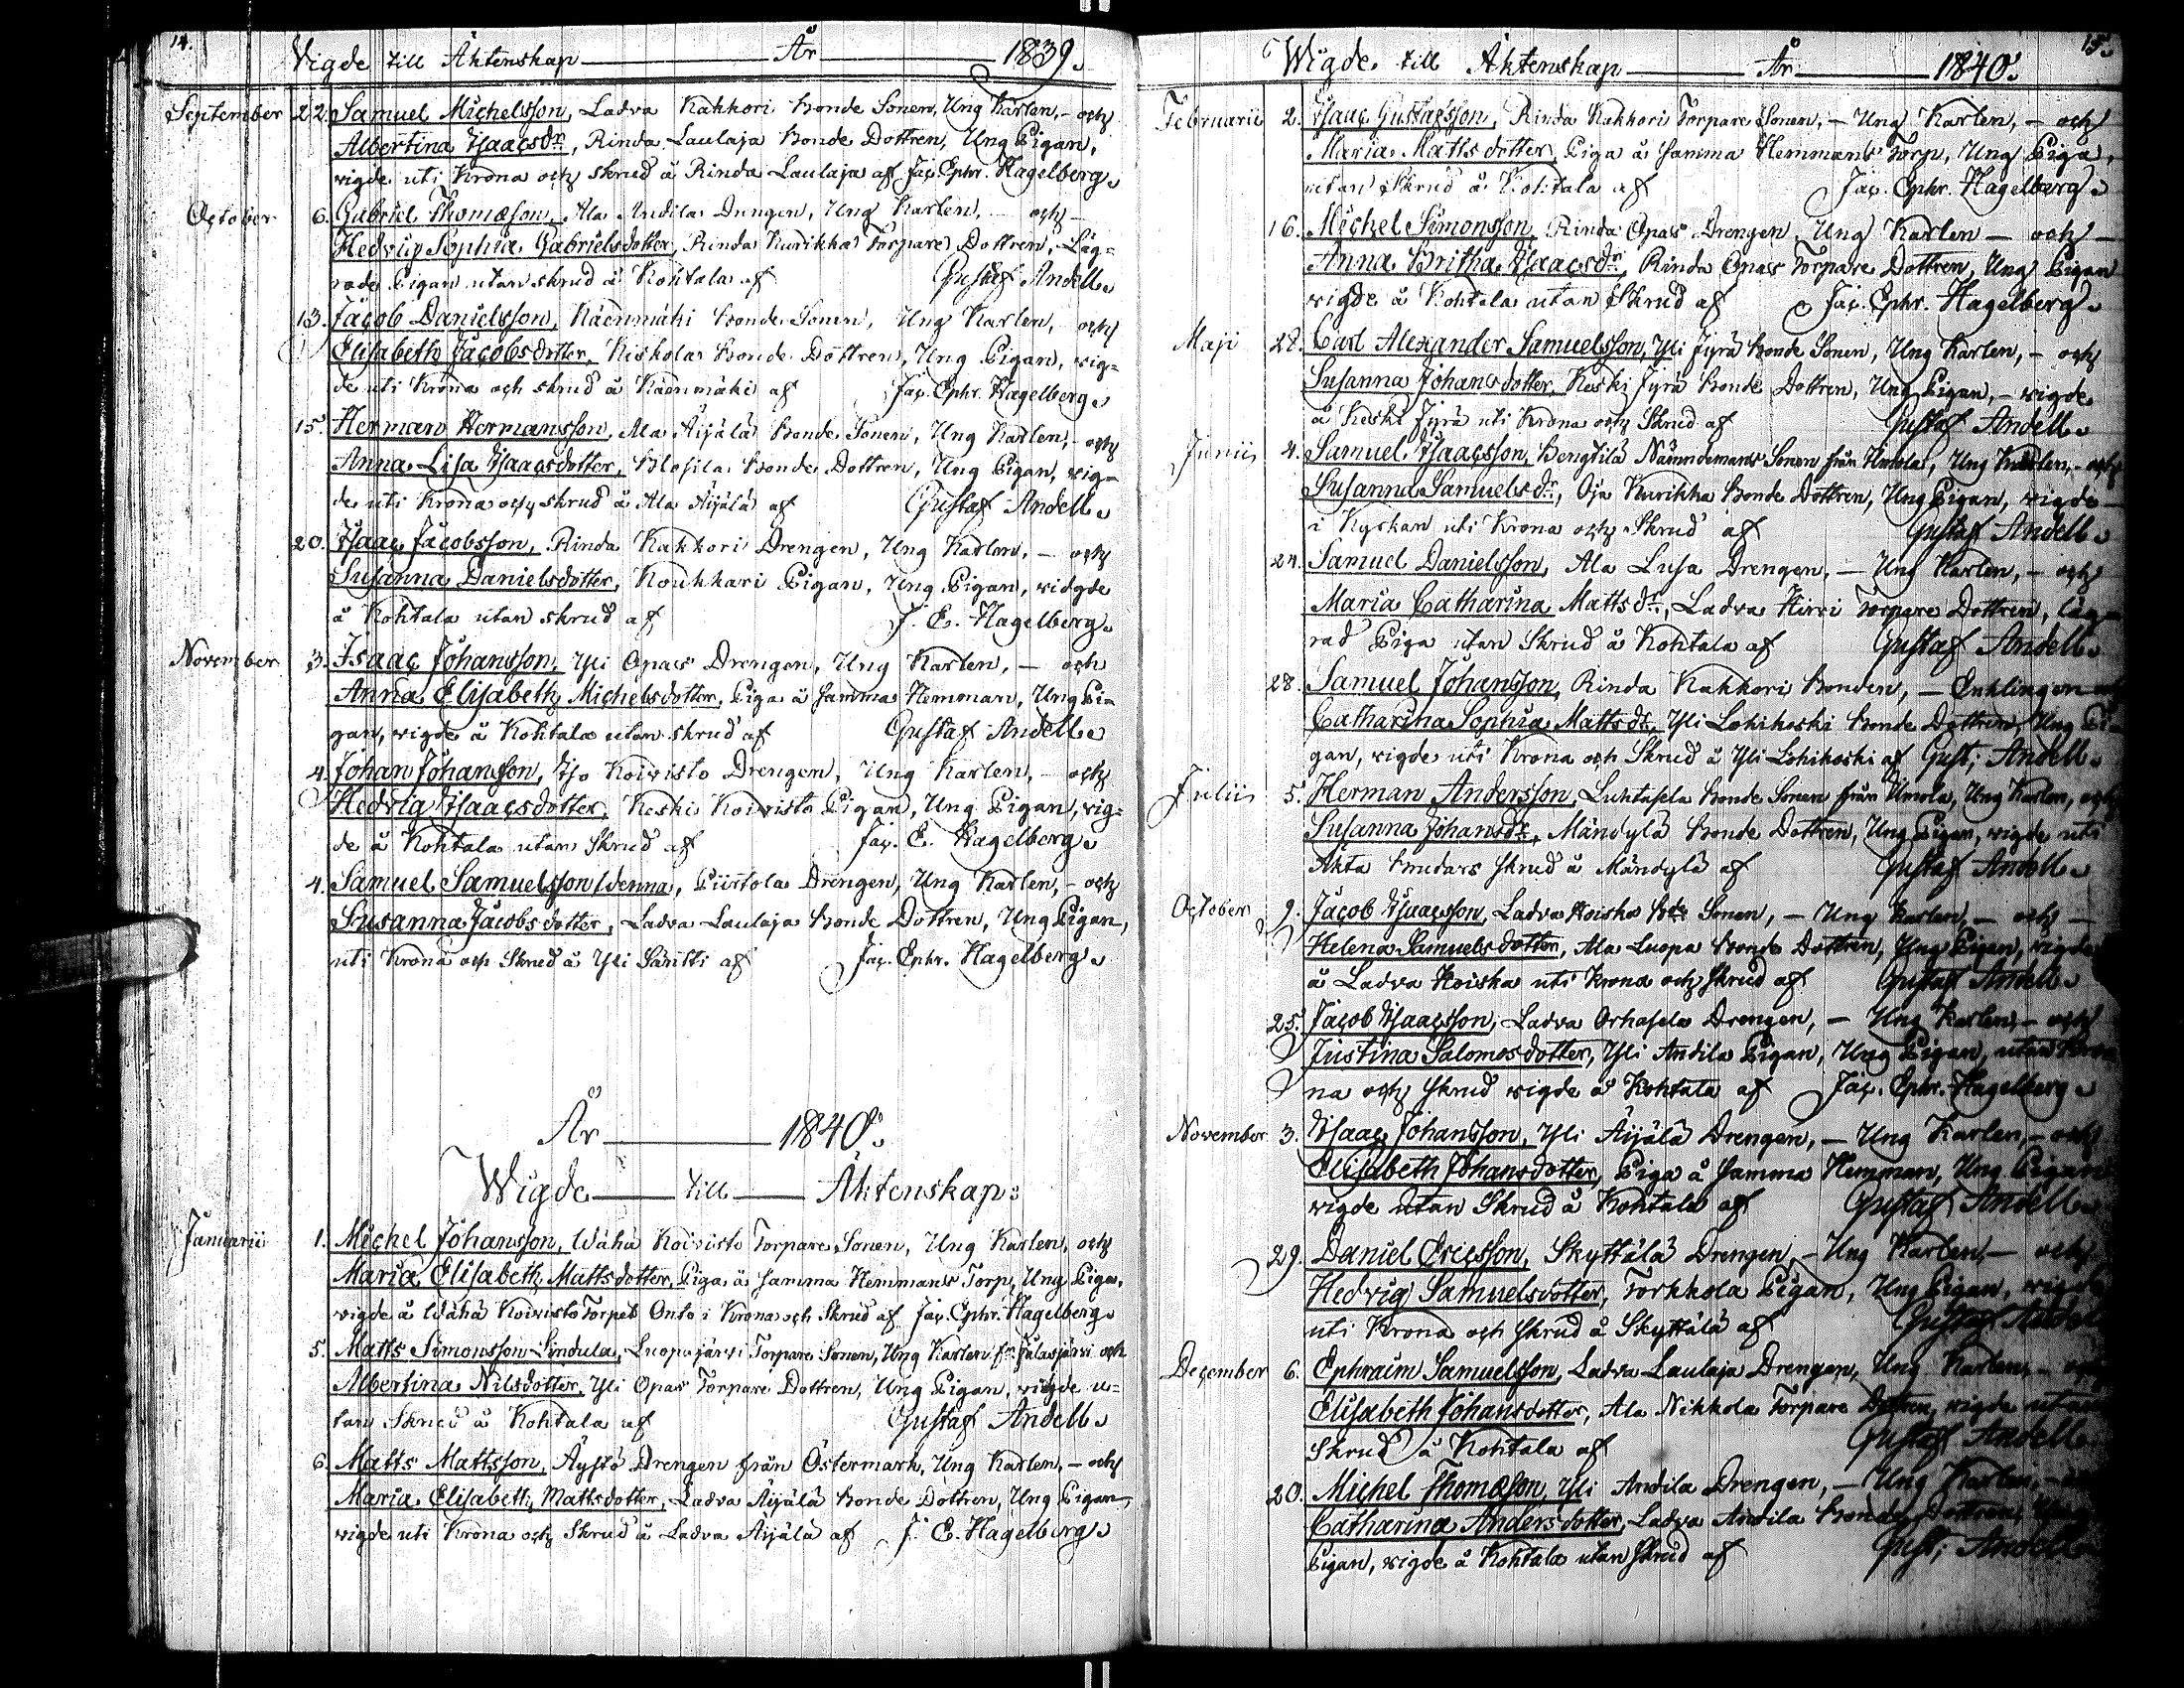 14.
Vigde till Äktenskap År 1839.
September 22. Samuel Michelsson, Ladva Kakkori Bonde Sonen, Ung Karlen, - och
Albertina Isaacsdr, Rinda Laulaja Bonde Dottren, Ung Pigan,
vigde uti Krona och skrud å Rinda Laulaja af Jac. Ephr. Hagelberg.
October 6. Gabriel Thomasson, Ala Andila Drengen, Ung Karlen, - och -
Hedvig Sophia Gabrielsdotter, Rinda Kurikka Torpare Dottren, Läg=
rade Pigan utan skrud å Kohtala af Gustaf Andell.
13. Jacob Danielsson, Käenmäki Bonde Sonen, Ung Karlen, och
Elisabeth Jacobsdotter, Kiskola Bonde Dottren, Ung Pigan, vig=
de uti Krona och skrud å Käenmäki af Jac. Ephr. Hagelberg.
15. Herman Hermansson, Ala Äijälä Bonde Sonen, Ung Karlen, - och
Anna Lisa Isaacsdotter, Blofila Bonde Dottren, Ung Pigan, vig=
de uti Krona och skrud å Ala Äijälä af Gustaf Andell.
20. Isaac Jacobsson, Rinda Kakkori Drengen, Ung Karlen, - och
Susanna Danielsdotter, Koukkari Pigan, Ung Pigan, vidgde
å Kohtala utan skrud af J. E. Hagelberg.
November 3. Isaac Johansson, Yli Opas Drengen, Ung Karlen, - och
Anna Elisabeth Michelsdotter, Piga å samma Hemman, Ung Pi=
gan, vigde å Kohtala utan skrud af Gustaf Andell.
4. Johan Johansson, Iso Koivisto Drengen, Ung Karlen, - och
Hedvig Isaacsdotter, Keski Koivisto Pigan, Ung Pigan, vig=
de å Kohtala utan Skrud af Jac. E. Hagelberg.
4. Samuel Samuelsson Wenna, Piirtola Drengen, Ung Karlen, - och
Susanna Jacobsdotter, Ladva Laulaja Bonde Dottren, Ung Pigan,
uti Krona och Skrud å Yli Säntti af Jac. Ephr. Hagelberg.
År 1840.
Wigde till Äktenskap:
Januarii 1. Michel Johansson, Wähä Koivisto Torpare Sonen, Ung Karlen, och
Maria Elisabeth Mattsdotter, Piga å samma Hemmans Torp, Ung Piga,
vigde å Wähä Koivisto Torpet Onto i Krona och Skrud af Jac. Ephr. Hagelberg.
5. Matts Simonsson Lindula, Luopajärvi Torpare Sonen, Ung Karlen fr. Jalasjärvi och
Albertina Nilsdotter, Yli Opas Torpare Dottren, Ung Pigan, vigde u=
tan Skrud å Kohtala af Gustaf Andell.
6. Matts Mattsson, Äystö Drengen från Östermark, Ung Karlen, - och
Maria Elisabeth Mattsdotter, Ladva Äijälä Bonde Dottren, Ung Pigan,
vigde uti Krona och Skrud å Ladva Äijälä af J. E. Hagelberg.
15.
Wigde till Äktenskap År 1840.
Februarii 2. Isaac Gustafsson, Rinda Kakkori Torpare Sonen, - Ung Karlen, - och
Maria Matts dotter, Piga å samma Hemmans Torp, Ung Piga,
utan Skrud å Kohtala af Jac. Ephr. Hagelberg.
16. Michel Simonsson, Rinda Opas Drengen, Ung Karlen - och -
Anna Britha Isaacsdr, Rinda Opas Torpare Dottren, Ung Pigan
vigde å Kohtala utan Skrud af Jac. Ephr. Hagelberg.
Maji 28. Carl Alexander Samuelsson, Yli Jyrä Bonde Sonen, Ung Karlen, - och
Susanna Johansdotter, Keski Jyrä Bonde Dottren, Ung Pigan, - vigde
å Keski Jyrä uti Krona och Skrud af Gustaf Andell.
Junii 4. Samuel Isaacsson, Bengtilä Nämndemans Sonen från Ilmola, Ung Karlen, - och
Susanna Samuelsdr, Oja Kurikka Bonde Dottren, Ung Pigan, vigde
i Kyrkan uti Krona och Skrud af Gustaf Andell.
24. Samuel Danielsson, Ala Lusa Drengen, - Ung Karlen, - och
Maria Catharina Mattsdr, Ladva Hirvi Torpare Dottren, läg=
rad Piga utan Skrud å Kohtala af Gustaf Andell.
28. Samuel Johansson, Rinda Kakkori Bonden, - Enklingen och
Catharina Sophia Mattsdr, Yli Lohikoski Bonde Dottren, Ung Pi=
gan, vigde uti Krona och Skrud å Yli Lohikoski af Gust; Andell.
Julii 5. Herman Andersson, Luhtasela Bonde Sonen från Ilmola, Ung Karlen, och
Susanna Johansdr, Mändylä Bonde Dottren, Ung Pigan, vigde uti
Äkta Brudars skrud å Mändylä af Gustaf Andell.
October 9. Jacob Isaacsson, Ladva Koiska Bde Sonen, - Ung Karlen, - och -
Helena Samuelsdotter, Ala Luopa Bonde Dottren, Ung Pigan, vigde
å Ladva Koiska uti Krona och Skrud af Gustaf Andell.
25. Jacob Isaacsson, Ladva Orhasela Drengen, - Ung Karlen, - och
Justina Salomosdotter, Yli Andila Pigan, Ung Pigan, utan Kro
na och skrud vigde å Kohtala af Jac. Ephr. Hagelberg.
November 3. Isaac Johansson, Yli Äijälä Drengen, - Ung Karlen, - och
Elisabeth Johansdotter, Piga å samma Hemman, Ung Pigan
vigde utan Skrud å Kohtala af Gustaf Andell.
29. Daniel Ericsson, Skyttälä Drengen, - Ung Karlen, - och
Hedvig Samuelsdotter, Torkkola Pigan, Ung Pigan, vigde
uti Krona och Skrud å Skyttälä af Gustaf Andell
December 6. Ephraim Samuelsson, Ladva Laulaja Drengen, Ung Karlen, - och
Elisabeth Johansdotter, Ala Nikkola Torpare Dottren, vigde utan
Skrud å Kohtala af Gustaf Andell
20. Michel Thomasson, Yli Andila Drengen, - Ung Karlen, -
Catharina Andersdotter, Ladva Andila Bonde Dottren, Ung
Pigan, vigde å Kohtala utan Skrud af Gust; Andell